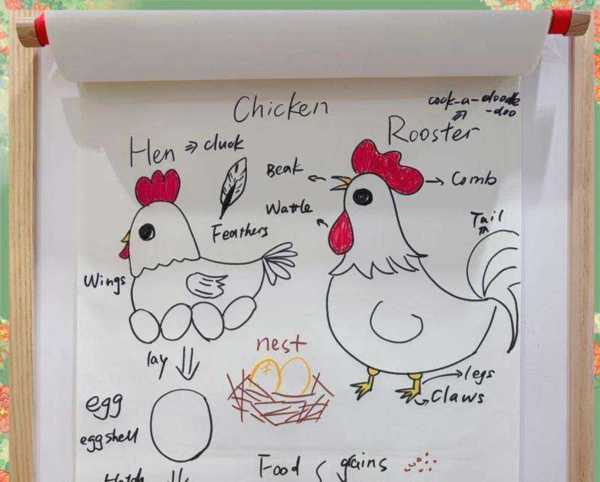 Chicken
cock-a-doodle
-doo
Hen ⇒ cluck
Rooster
Beak
Comb
Wattle
Feathers
Tail
Wings
nest
lay
legs
egg
Claws
eggshell
Food
grains
Hatch